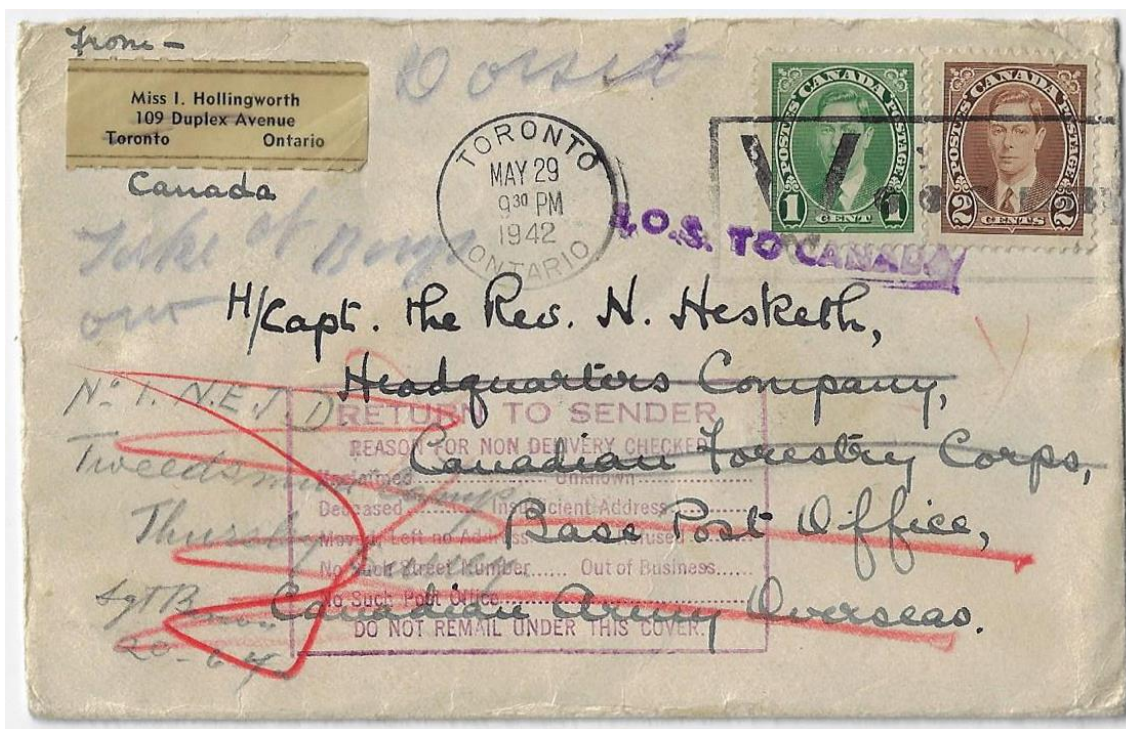 From –
Miss I. Hollingworth
109 Duplex Avenue
Toronto Ontario
Canada
Dorset
TORONTO
MAY 29
9 30 PM
1942
ONTARIO
POSTES CANADA POSTAGE
1 CENT 1
POSTES CANADA POSTAGE
2 CENTS 2
V
S.O.S. TO CANADA
H/Capt. the Rev. N. Hesketh,
Headquarters Company,
Canadian Forestry Corps,
Base Post Office,
Canadian Army Overseas.
No 1. N.E.T.D.
Thursley
Sgt
RETURN TO SENDER
REASON FOR NON DELIVERY CHECKED
Unclaimed........ Unknown........
Deceased........ Insufficient Address........
Moved, Left no Address........ Refused........
No Such Street Number...... Out of Business.....
No Such Post Office........
DO NOT REMAIL UNDER THIS COVER.